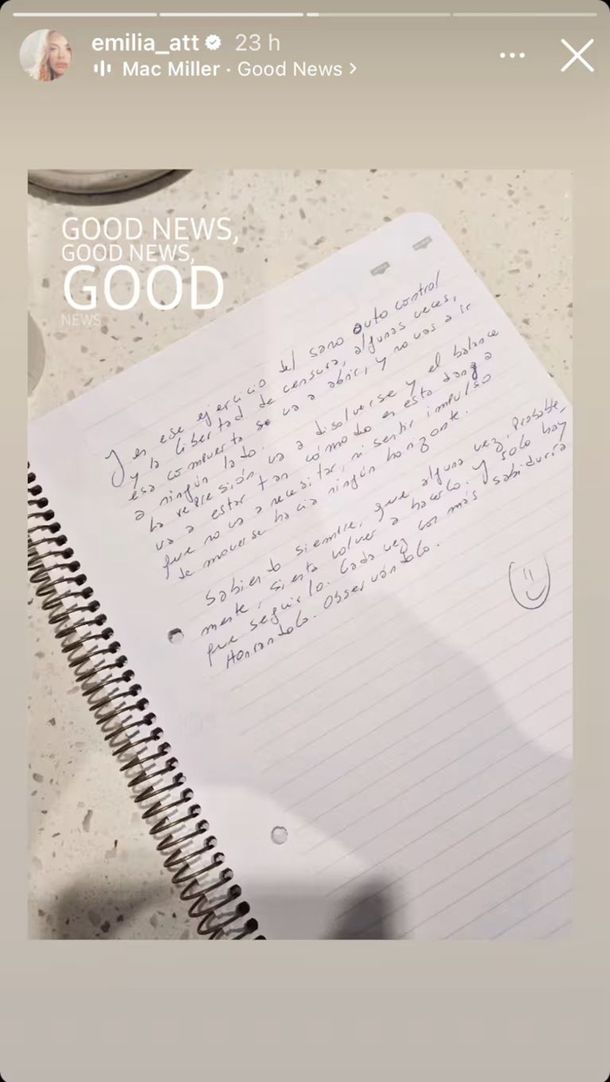 emilia_att 23 h
Mac Miller · Good News >
GOOD NEWS,
GOOD NEWS,
GOOD
NEWS
Y en ese ejercicio del sano auto control
y la libertad de censura, algunas veces,
esa compuerta se va a abrir, y no vas a ir
a ningún lado.
La represión va a disolverse y el balance
va a estar tan cómodo en esta danza
que no va a necesitar, ni sentir impulso
de moverse hacia ningún horizonte.
Sabiendo siempre, que alguna vez, probable-
mente, sienta volver a hacerlo. Y solo hay
que seguirlo. Cada vez con más sabiduría
Honrandolo. Observándolo.